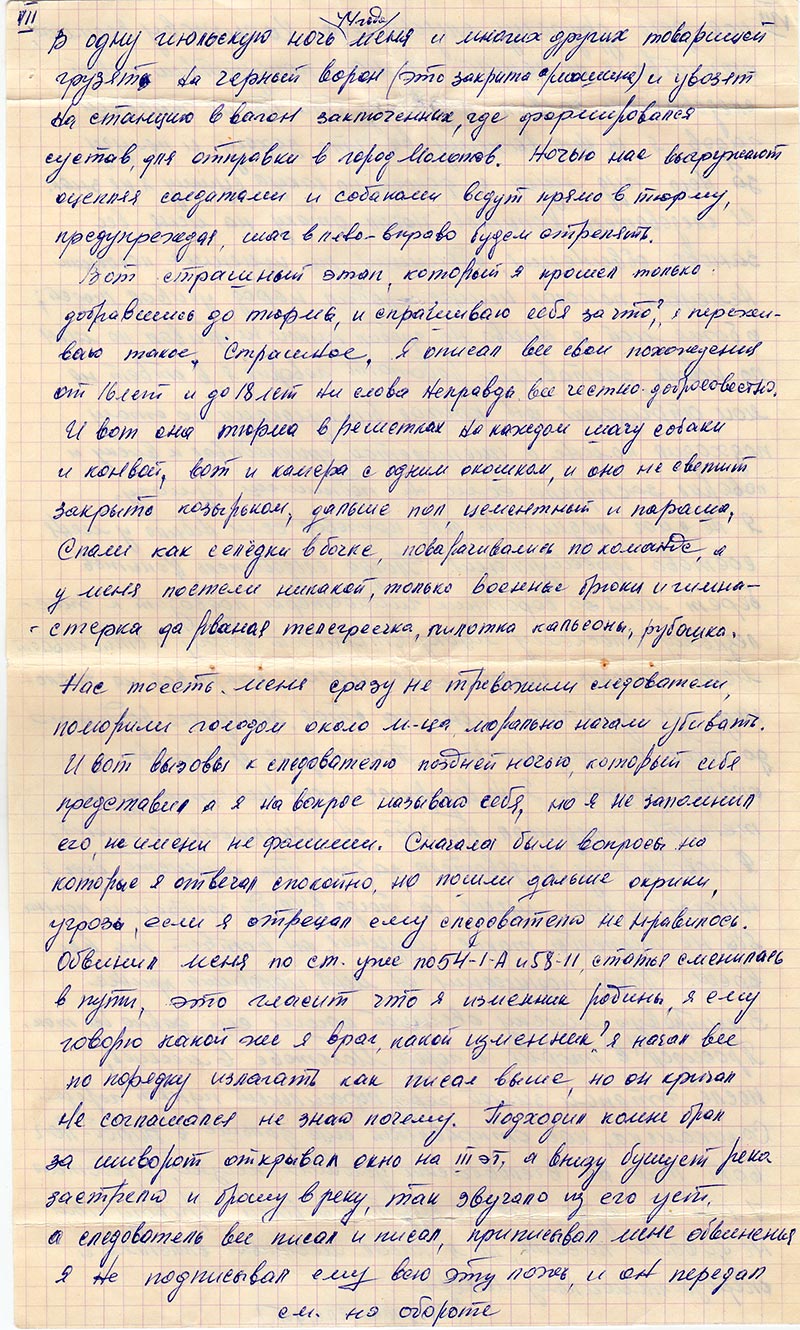 VII
44 года
В одну июльскую ночь меня и многих других товарищей
грузят на черный ворон (это закрита рмашина) и увозят
на станцию в вагон заключенных, где формировался
сустав, для отправки в город Молотов. Ночью нас выгружают
оцепляя солдатами и собаками ведут прямо в тюрму,
предупреждая, шаг влево-вправо будем стрелять.
Вот страшный этап, который я прошел только
добравшись до тюрмы, и спрашиваю себя за что?, я пережи-
ваю такое. Страшное. Я описал все свои похождения
от 16 лет и до 18 лет ни слова неправды все честно-добросовестно.
И вот она тюрма в решетках на каждом шагу собаки
и конвой, вот и камера с одним окошком, и оно не светит
закрыто козырьком, дальше пол, цементный и параша,
Спали как селёдки в бочке, поварачивались по команде, а
у меня постели никакой, только военные брюки и гимна-
-стерка да рваная телегреечка, пилотка кальсоны, рубашка.
Нас тоесть меня сразу не тревожили следователи,
поморили голодом около м-ца морально начали убивать.
И вот вызовы к следователю поздней ночью, который себя
представил а я на вопрос называю себя, но я не запомнил
его, не имени не фамилии. Сначала были вопросы на
которые я отвечал спокойно, но пошли дальше окрики,
угрозы, если я отрецал ему следователю не нравилось.
Обвинил меня по ст. уже по 54-1-А и 58-11, статья сменилась
в пути, это гласит что я изменник родины, я ему
говорю какой же я враг, какой изменник? я начал все
по порядку излагать как писал выше, но он кричал
не соглашался не знаю почему. Подходил комне брал
за шиворот открывал окно на III эт, а внизу бушует река
застрелю и брошу в реку, так звучало из его уст,
а следователь все писал и писал, приписывал мене обвиненья
Я не подписывал ему всю эту ложь, и он передал
см. на обороте